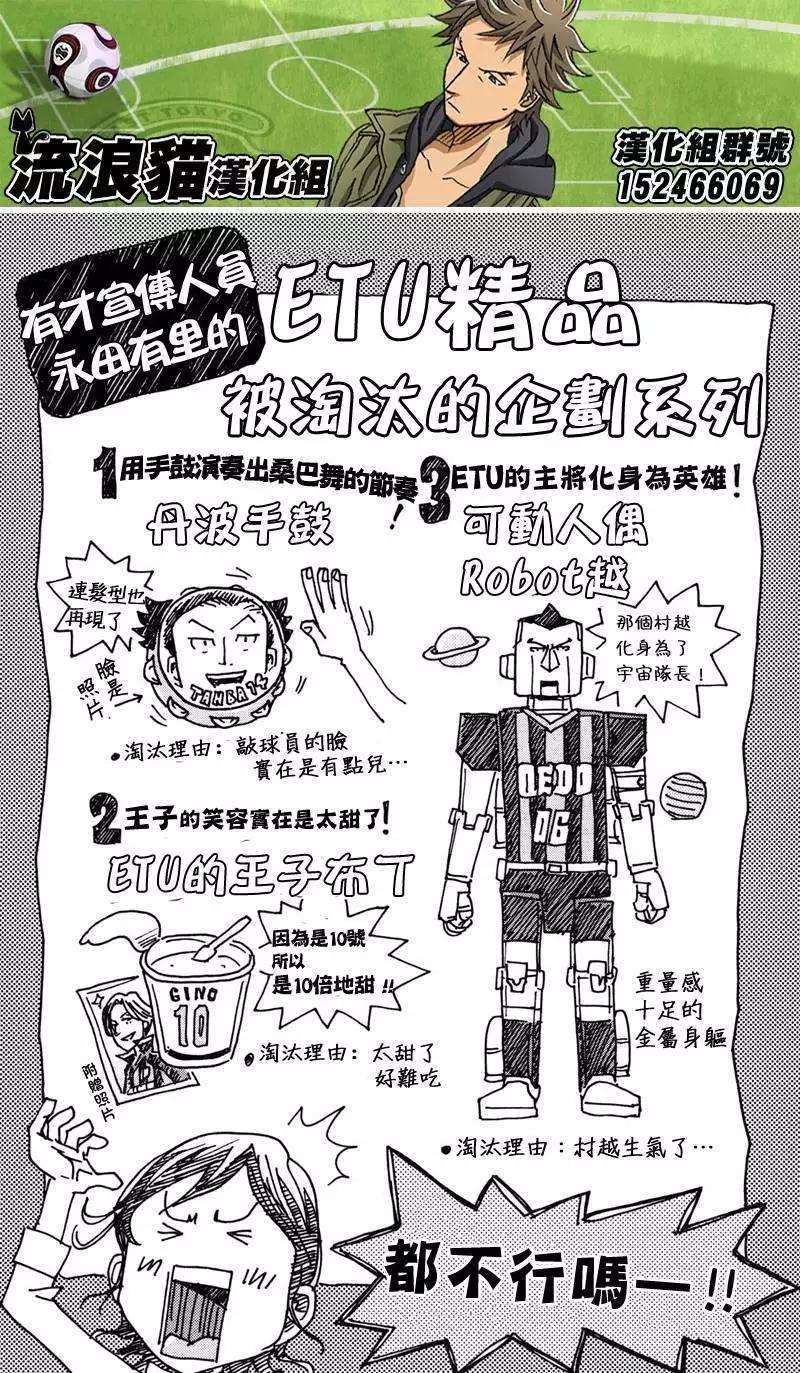 T TOKYO
流浪貓漢化組
漢化組群號
152466069
有才宣傳人員
永田有里的
ETU精品
被淘汰的企劃系列
1用手鼓演奏出桑巴舞的節奏!
丹波手鼓
連髮型也
再現了
臉是
照片
TAMBA14
•淘汰理由：敲球員的臉
實在是有點兒…
2王子的笑容實在是太甜了!
ETU的王子布丁
因為是10號
所以
是10倍地甜!!
GINO
10
附贈照片
•淘汰理由：太甜了
好難吃
3ETU的主將化身為英雄!
可動人偶
Robot越
那個村越
化身為了
宇宙隊長!
06
重量感
十足的
金屬身軀
•淘汰理由：村越生氣了…
都不行嗎—!!